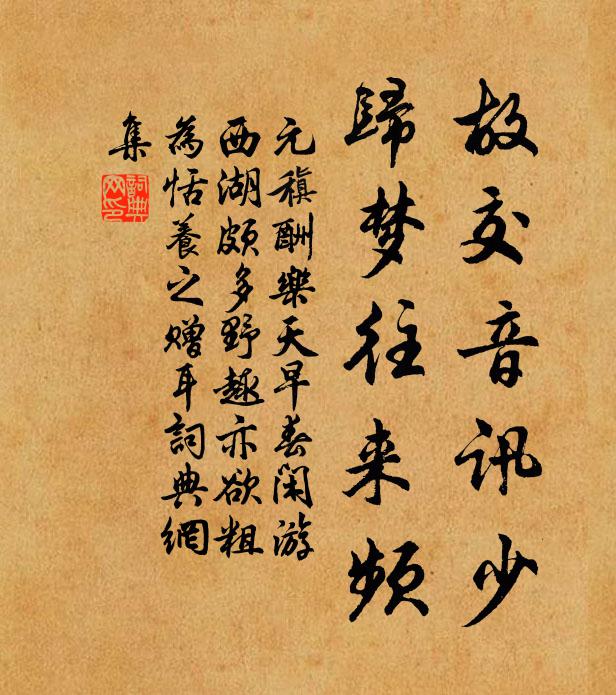 故交音讯少
歸梦往来频
元稹酬樂天早春闲游
西湖颇多野趣亦欲粗
為恬養之赠耳詞典網
集
詞典网印